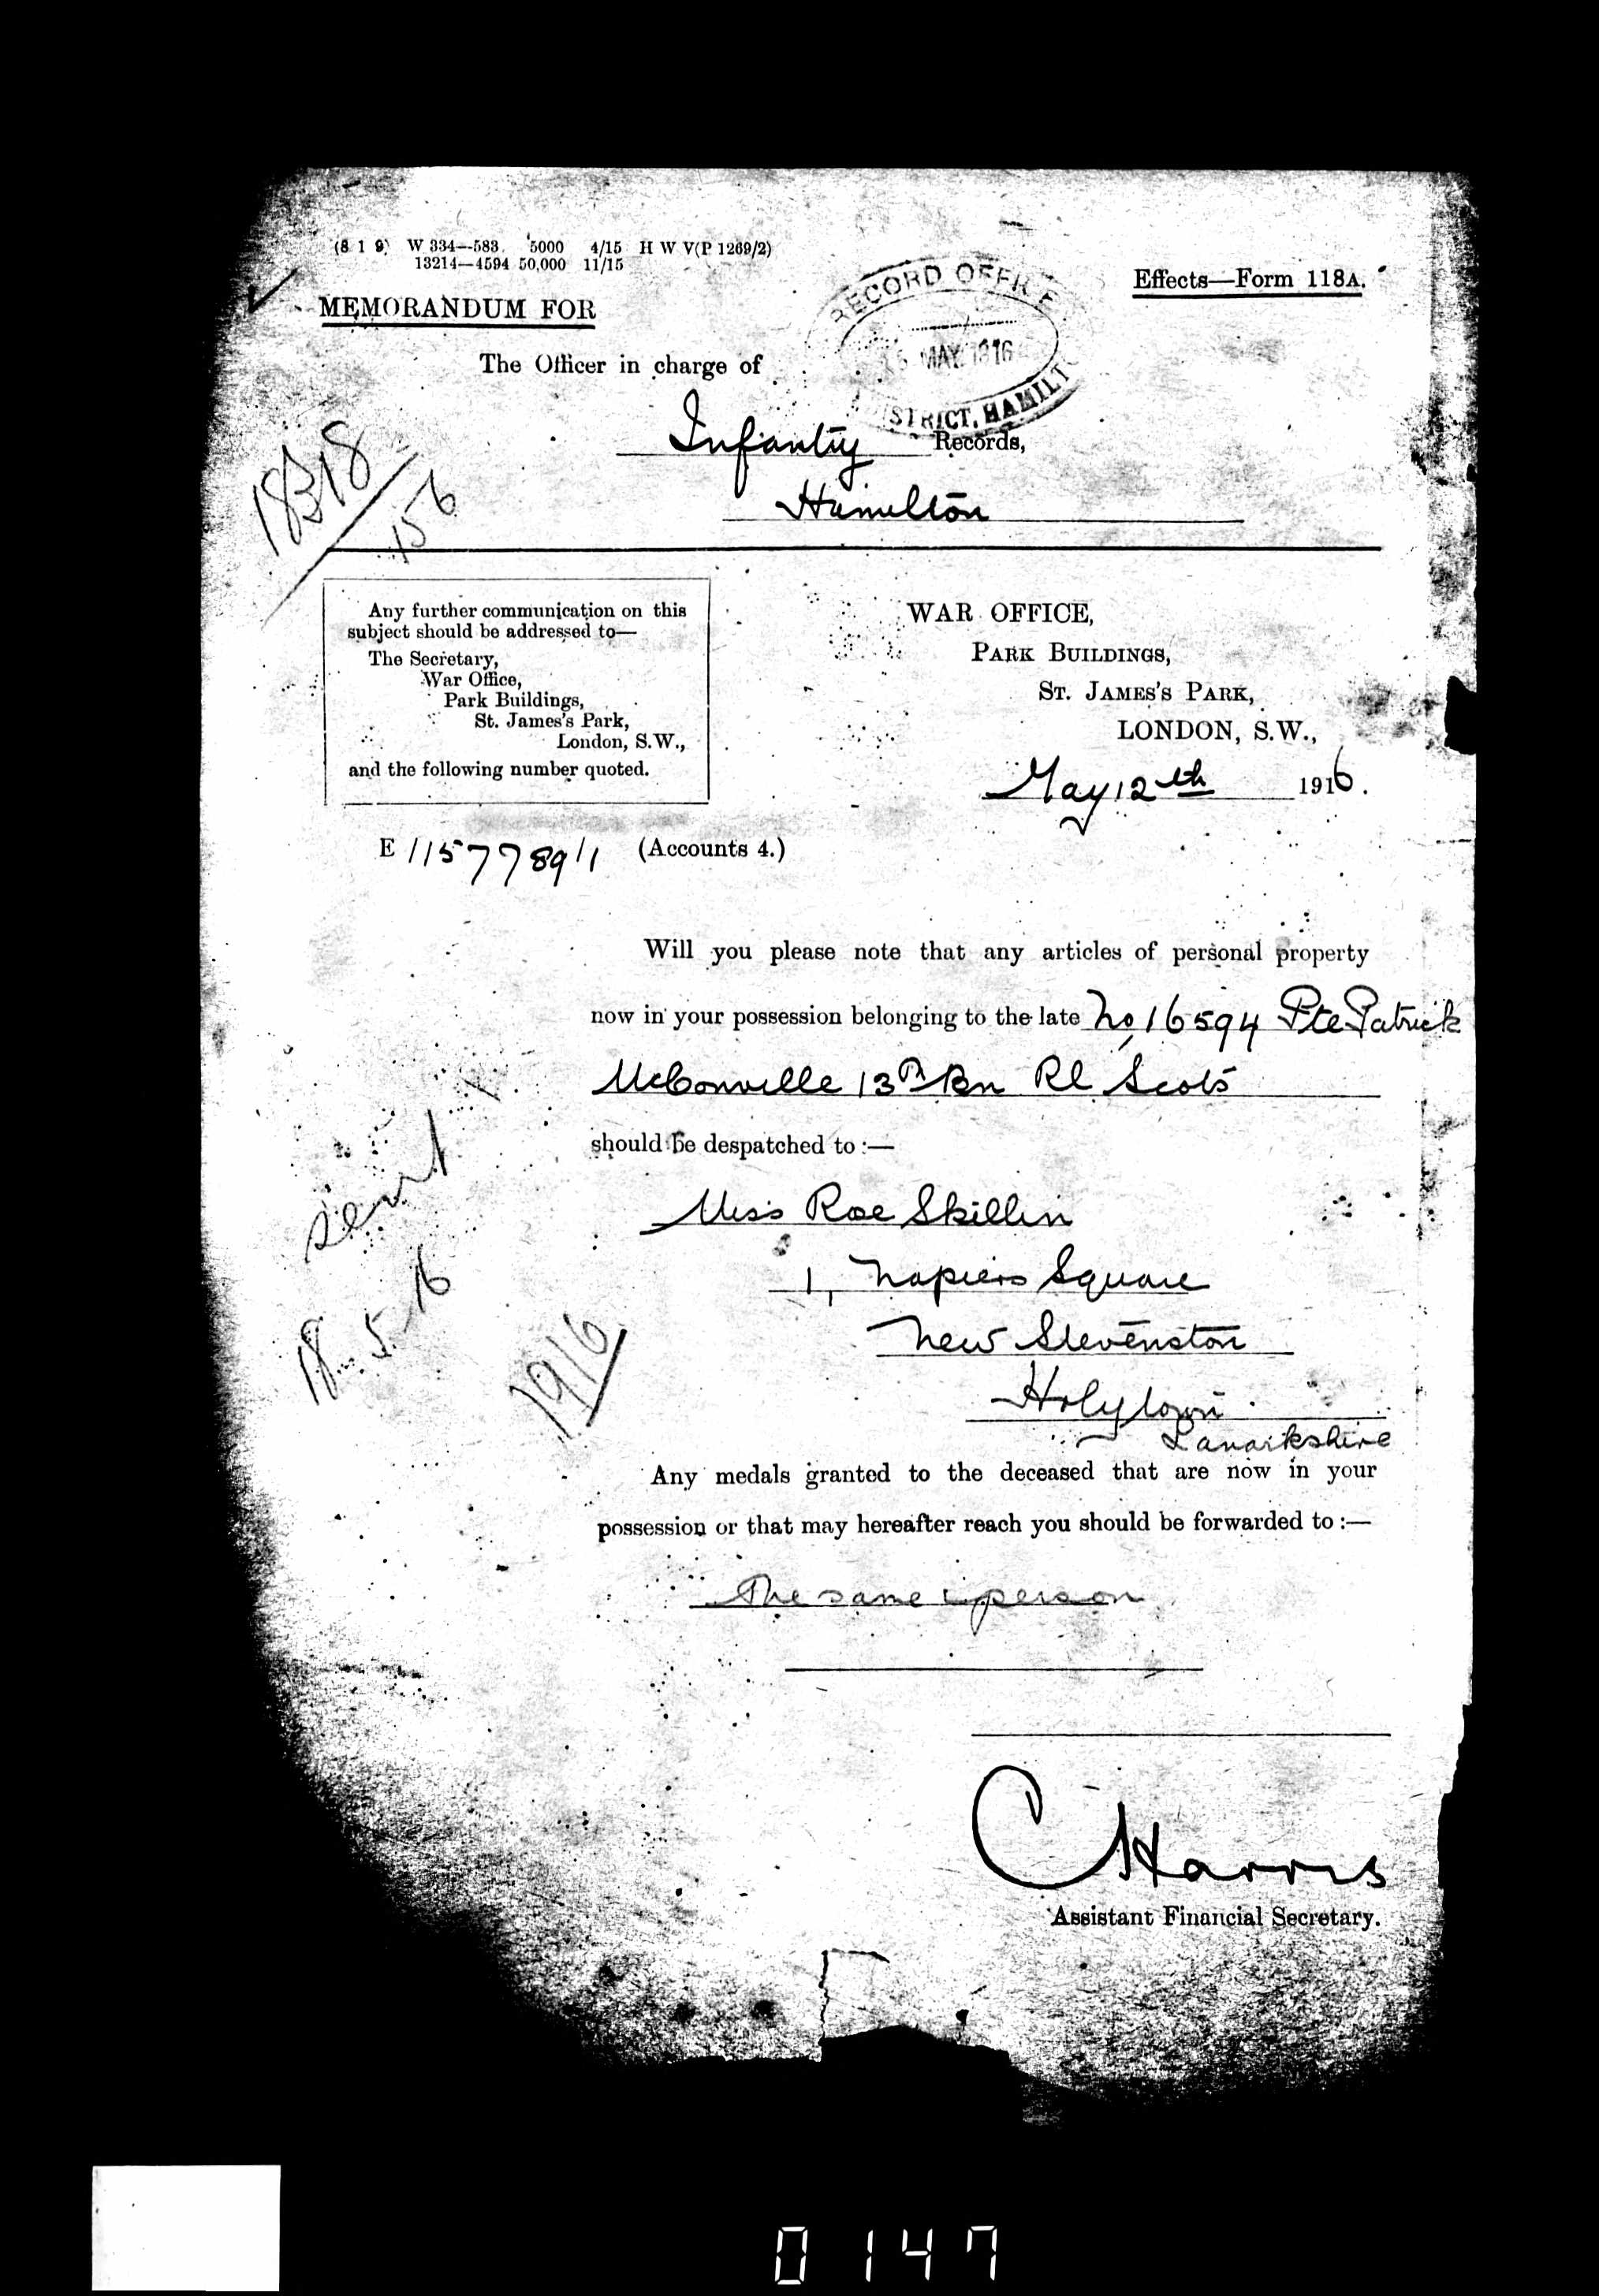 (8 1 9) W 334—583. 5000 4/15 H W V(P 1269/2)
13214—4594 50,000 11/15
Effects—Form 118A.
MEMORANDUM FOR
RECORD OFFICE
MAY 1916
STRICT, HAMILT
The Officer in charge of
Infantry Records,
Hamilton
18318
156
Any further communication on this
subject should be addressed to—
The Secretary,
War Office,
Park Buildings,
St. James's Park,
London, S.W.,
and the following number quoted.
WAR OFFICE,
PARK BUILDINGS,
ST. JAMES'S PARK,
LONDON, S.W.,
May 12th 1916.
E /157789/1 (Accounts 4.)
Will you please note that any articles of personal property
now in your possession belonging to the late No 16594 Pte Patrick
McConville 13th Bn Rl Scots
should be despatched to :—
Miss Rose Skillen
1, Napiers Square
New Stevenston
Holytown
Lanarkshire
sent
18-5-16
1916
Any medals granted to the deceased that are now in your
possession or that may hereafter reach you should be forwarded to :—
The same person
C Harris
Assistant Financial Secretary.
0147